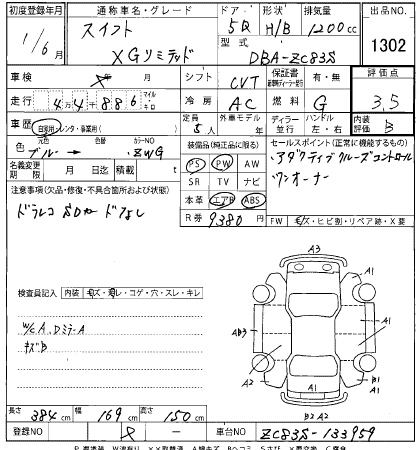 初度登録年月 通称車名・グレード ドア・形状 排気量 出品NO.
1/6月 スイフト 5D H/B 1200cc 1302
型式
XGリミテッド DBA-ZC83S
車検 年 月 シフト CVT 保証書 有・無 評価点
走行 44886 マイル キロ 冷房 AC 燃料 G 3.5
車歴 自家用・レンタ・事業用( ) 定員 5人 外車モデル 年 ディーラー 並行 ハンドル 左・右 内装評価 B
色 元色 色替 カラーNO
ブルー → ZWG
装備品(純正品に限る) セールスポイント(正常に機能するもの)
名義変更期限 月 日迄 積載 t
PS PW AW アダクティブクルーズコントロール
SR TV ナビ ワンオーナー
注意事項(欠品・修復・不具合箇所および状態)
本革 エアB ABS
ドラレコ SDカードなし
R券 9380円 FW キズ・ヒビ割・リペア跡・X要
検査員記入 内装 キズ・汚レ・コゲ・穴・スレ・キレ
A3
A1
A1
W/c A、DミラーA
キズB
AB3
A2
A2
B1
A1
B2 A2
長さ 384cm 幅 169cm 高さ 150cm
登録NO 車台NO ZC83S-133959